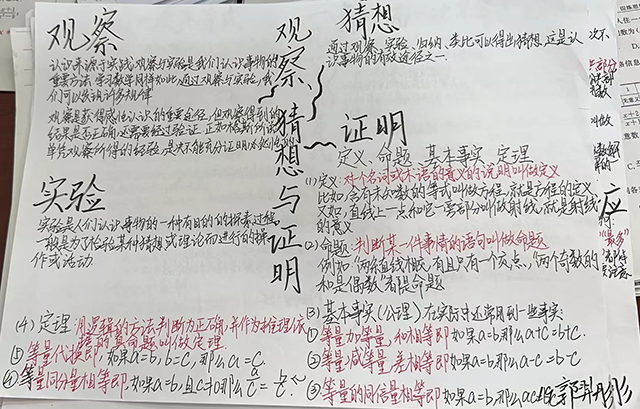 观察
认识来源于实践,观察与实验是我们认识事物的
重要方法,学习数学同样如此,通过观察、实验,我
们可以发现许多规律
观察是获得感性认识的重要途径,但观察得到的
结果是否正确,还需要经过验证,正如恩格斯所说
单凭观察所得的经验,是决不能充分证明必然性的
实验
实验是人们认识事物的一种有目的的探索过程,
一般是为了检验某种猜想或理论而进行的操
作或活动
观察、猜想与证明
猜想
通过观察、实验、归纳、类比可以得出猜想,这是认
识事物的有效途径之一
证明
定义、命题、基本事实、定理
(1)定义:对名词或术语的意义的说明叫做定义
比如,含有未知数的等式叫做方程,就是方程的定义
又如,直线上一点和它一旁部分叫做射线,就是射线
的意义
(2)命题:判断某一件事情的语句叫做命题
例如“两条直线相交,有且只有一个交点”、“两个奇数的
和是偶数”都是命题
(3)基本事实(公理)在实际时还常用到一些事实:
①等量加等量,和相等即如果a=b,那么a+c=b+c.
②等量减等量,差相等即如果a=b,那么a-c=b-c
③等量的同倍量相等即如果a=b,那么ac=bc
(4)定理:用逻辑的方法判断为正确,并作为推理依
据的真命题叫做定理
⑤等量代换即,如果a=b,b=c,那么a=c
④等量同分量相等即如果a=b,且c≠0那么a/c=b/c
郭羿彤
次不
叫做
应
“最多”